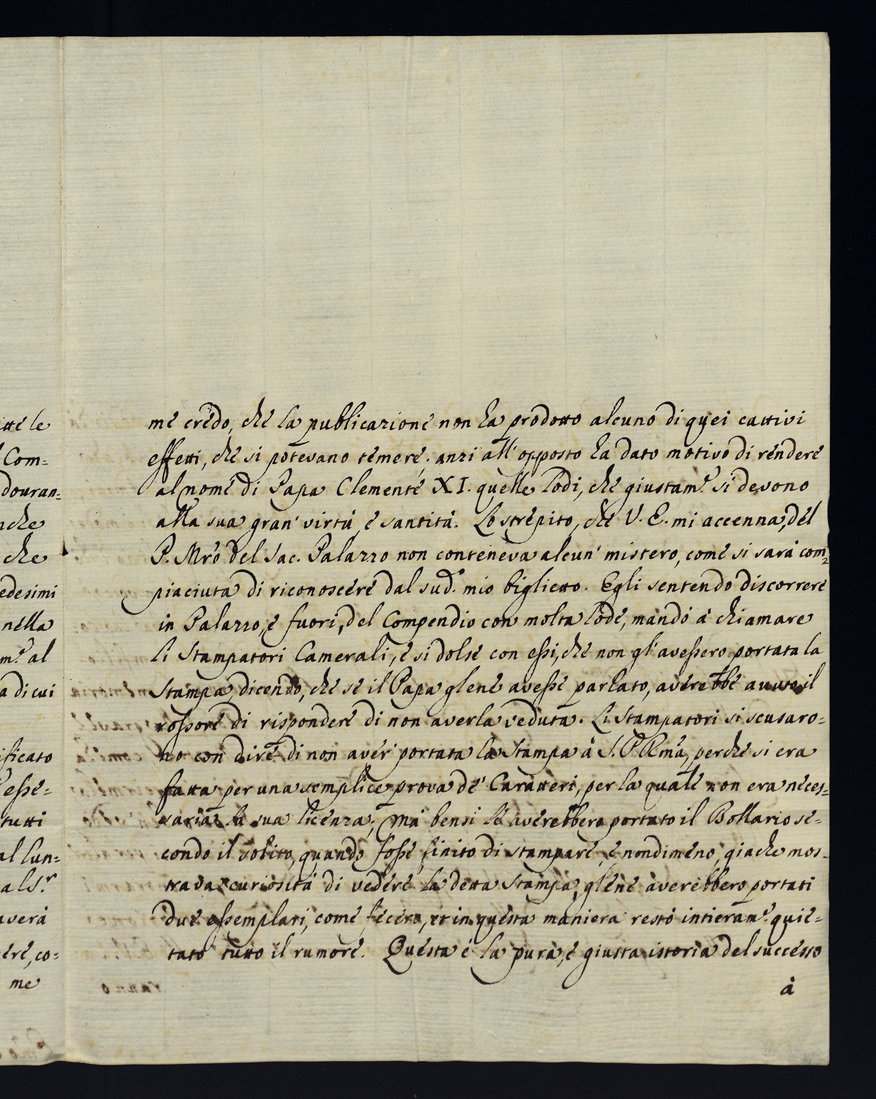 itté le
Com=
douran=
nche
che
edesimi
nella
m.e al
a di cui
ificato
esse=
tutti
al Lun=
al S.r
averà
ere, co=
me
mé crédo, ché la publicazioné non ha prodotto alcuno di quei cattivi
effetti, ché si potevano téméré; anzi all'opposto ha dato motivo di rénderé
al nomé di Papa Cleménté XI. quelle lodi, ché giustam.e si devono
alla sua gran' virtù é santità. Lo strépito, ché V. E. mi accenna, dél
P. Mrō del Sac. Palazzo non conteneva alcun' mistero, comé si sarà com=
piaciuta di riconosceré dal sud.o mio biglietto. Egli sentendo discorreré
in Palazzo, é fuori, del Compendio con molta lodé, mandò à chiamare
li Stampatori Camerali, é si dolsé con essi, ché non gl'avessero portata la
Stampa, dicendo, ché sé il Papa gliené avessé parlato, averebbé avuto il
rossoré di risponderé di non averla veduta. Li Stampatori si scusaro=
no con diré di non aver' portata la Stampa à S. P. Rma, perché si era
fatta per una semplice prova dé' Caratteri, per la qualé non era néces=
saria la sua licénza; mà bensi li averebbero portato il Bollario sé=
condo il solito, quando fossé finito di stamparé, é nondiméno, giaché mos=
trava curiosità di vederé la detta Stampa, gliené averebbero portati
dué essemplari, comé fécéro, et in questa maniera restò intieram.e quié=
tato tutto il rumoré. Questa é la pura, é giusta istoria del successo
à